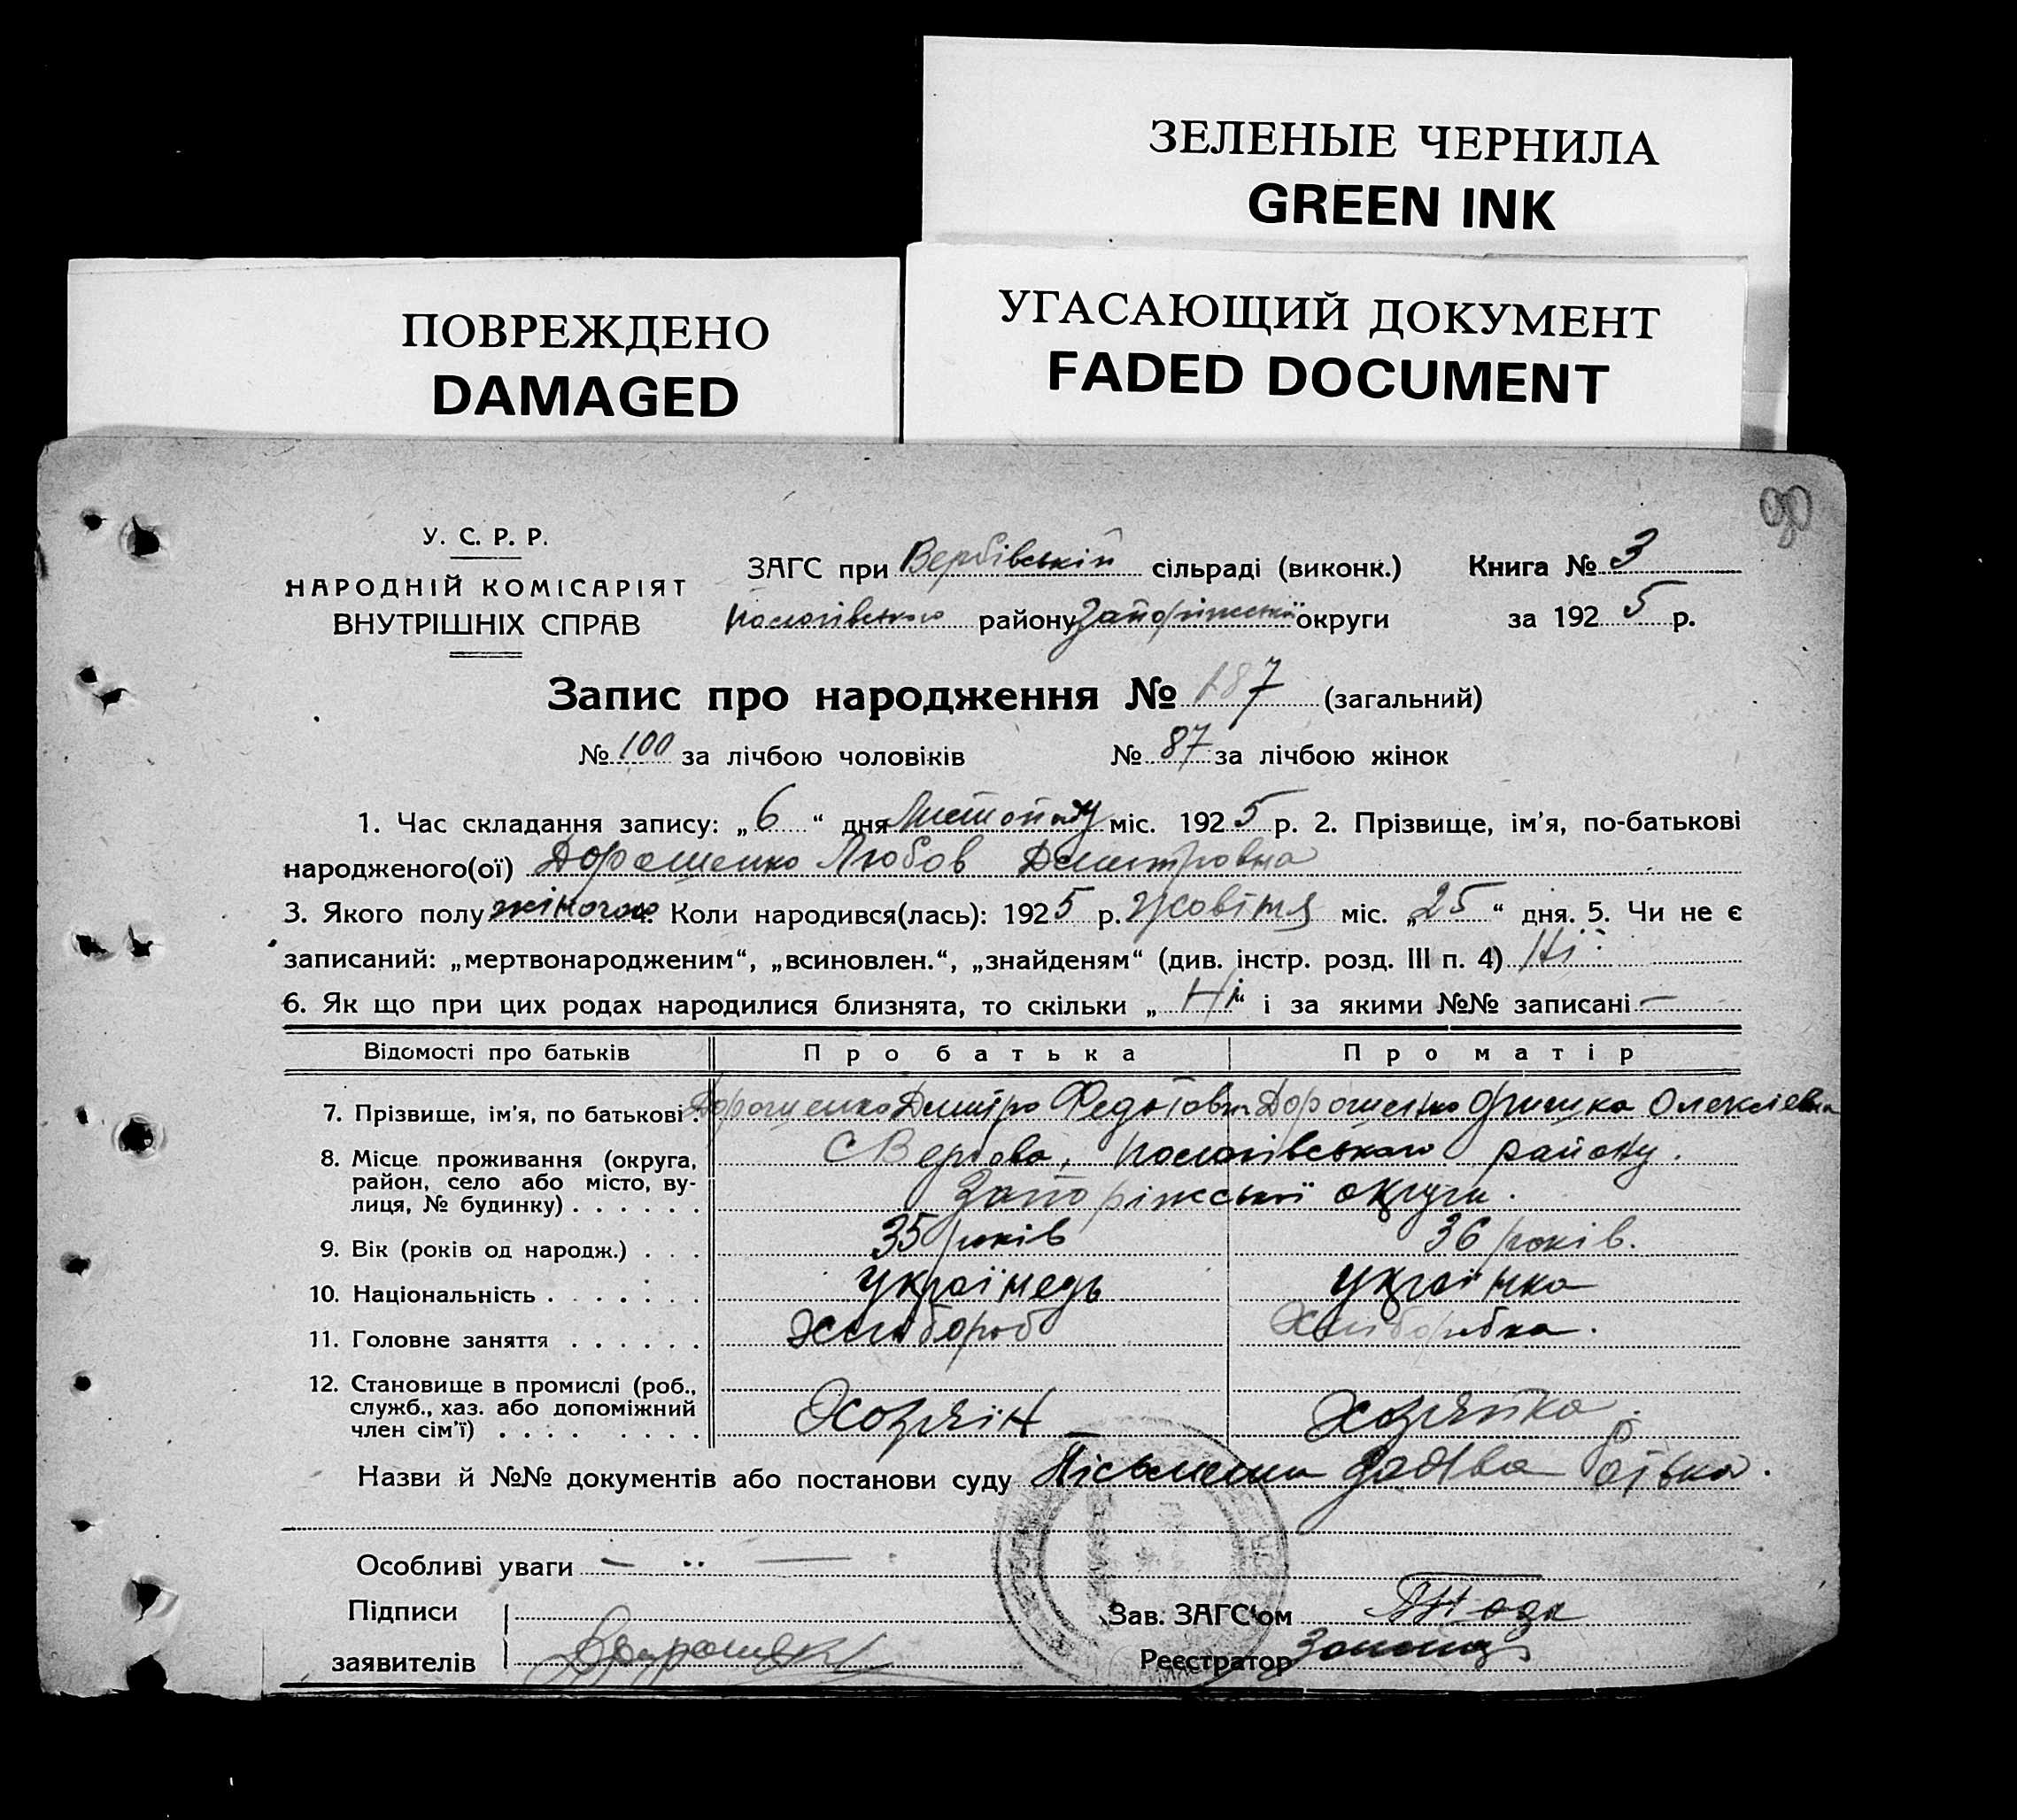 ЗЕЛЕНЫЕ ЧЕРНИЛА
GREEN INK
ПОВРЕЖДЕНО
DAMAGED
УГАСАЮЩИЙ ДОКУМЕНТ
FADED DOCUMENT
90
У. С. Р. Р.
НАРОДНІЙ КОМІСАРІЯТ
ВНУТРІШНІХ СПРАВ
ЗАГС при Вербівській сільраді (виконк.) Книга № 3
Пологівського району Запоріжської округи за 1925 р.
Запис про народження № 187 (загальний)
№ 100 за лічбою чоловіків № 87 за лічбою жінок
1. Час складання запису: „6“ дня Листопаду міс. 1925 р. 2. Прізвище, ім'я, по-батькові
народженого(ої) Дорошенко Любов Дмитровна
3. Якого полу жіночого Коли народився(лась): 1925 р. Жовтня міс. „25“ дня. 5. Чи не є
записаний: „мертвонародженим“, „всиновлен.“, „знайденям“ (див. інстр. розд. III п. 4) Ні
6. Як що при цих родах народилися близнята, то скільки „Ні“ і за якими №№ записані —
Відомості про батьків Про батька Про матір
7. Прізвище, ім'я, по батькові Дорошенко Дмитро Федотович Дорошенко Олексієвна
8. Місце проживання (округа, район, село або місто, вулиця, № будинку) С Вербова, Пологівського району.
Запоріжської округи.
9. Вік (років од народж.) 35 років 36 років.
10. Національність українець українка
11. Головне заняття Хлібороб Хліборобка.
12. Становище в промислі (роб., служб., хаз. або допоміжний член сім'ї) Хозяїн Хозяйка.
Назви й №№ документів або постанови суду Пісьмена заява батька.
Особливі уваги — „ —
Підписи
Зав. ЗАГС'ом
заявителів Дорошенко Реєстратор